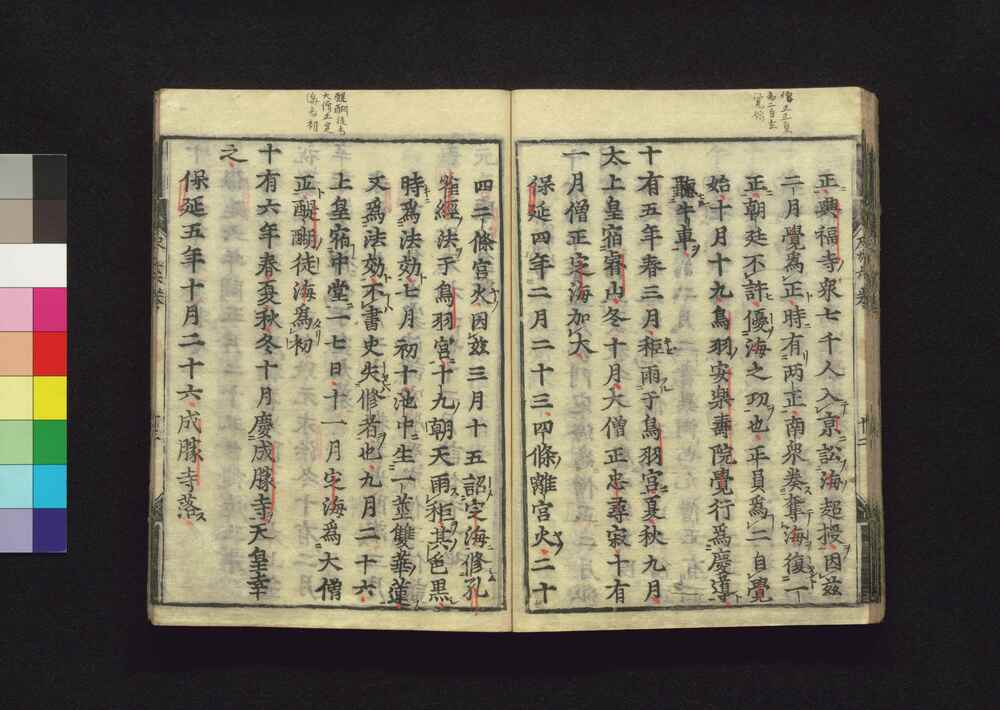 正興福寺衆七千人入京訟海超授因茲
二月覺為正時有両正南衆奏奪海復一
正朝廷不許優海之功也正員為二自覺
始十月十九鳥羽安樂壽院覺行為慶導
聽牛車
十有五年春三月秬雨于鳥羽宮夏秋九月
太上皇宿睿山冬十月大僧正忠尋寂十有
一月僧正定海加大
保延四年二月二十三四條離宮火二十
四二條宮火因茲三月十五詔定海修孔
雀經法于鳥羽宮十九朝天雨秬其色黒
時為法効七月初十池中生一莖雙華蓮
又為法効不書史失修者也九月二十六
上皇宿中堂一七日十一月定海為大僧
正醍醐徒海為初
十有六年春夏秋冬十月慶成勝寺天皇幸
之
保延五年十月二十六成勝寺落
醍醐徒为
大僧正定
海為初
十二